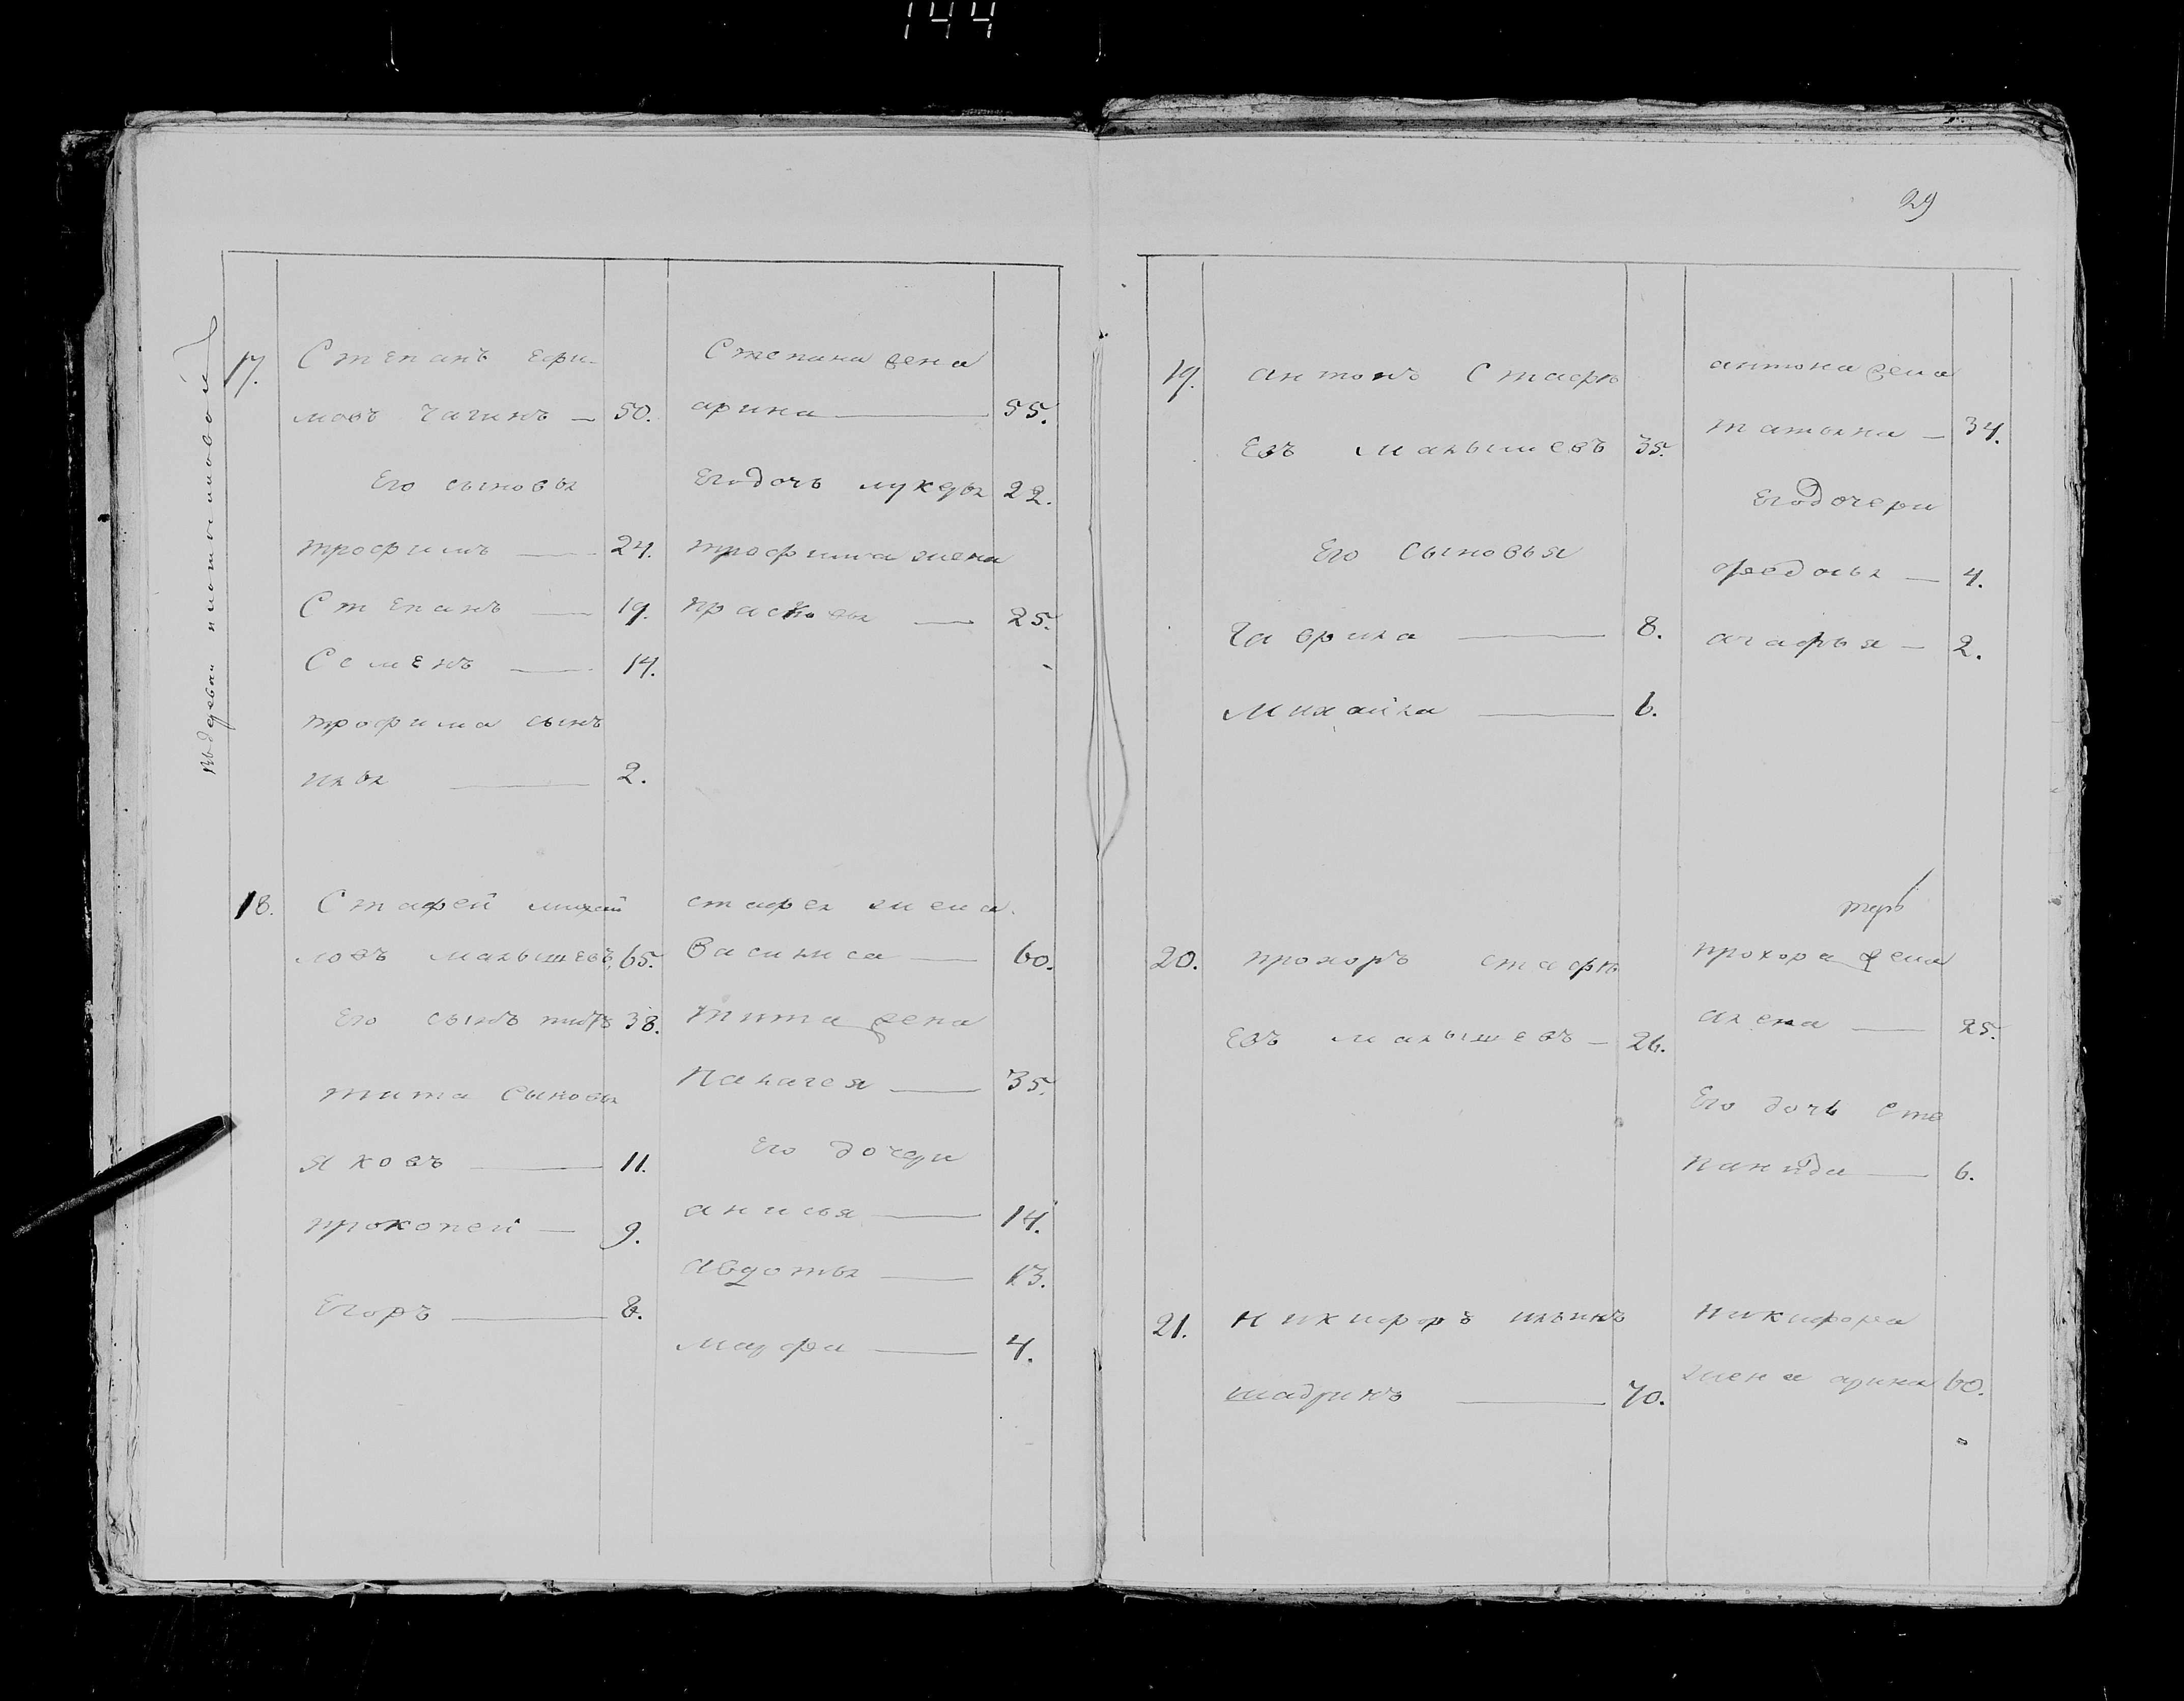 144
29
17.
Степанъ Ефи-
мовъ Чагинъ — 50.
Его сыновья
трофимъ — 24.
Степанъ — 19.
Семенъ — 14.
трофима сынъ
илья — 2.
Степана жена
арина — 55.
Его дочь лукерья 22.
трофима жена
прасковья — 25.
18.
Стафей михай
ловъ малышевъ 65.
Его сынъ титъ 38.
тита сыновья
яковъ — 11.
прокопей — 9.
Егоръ — 8.
стафея жена
Васиниса — 60.
тита жена
Палагея — 35.
Его дочери
анисья — 14.
авдотья — 13.
марфа — 4.
19.
антонъ Стафе
Евъ малышевъ 35.
Его сыновья
Гаврила — 8.
Михайла — 6.
антона жена
татьяна — 34.
Его дочери
федосья — 4.
агафья — 2.
20.
прохоръ стафе
Евъ малышевъ — 26.
прохора жена
алена — 25.
Его дочь Сте
панида — 6.
21.
никифоръ ильинъ
шадринъ — 70.
никифора
жена арина 60.